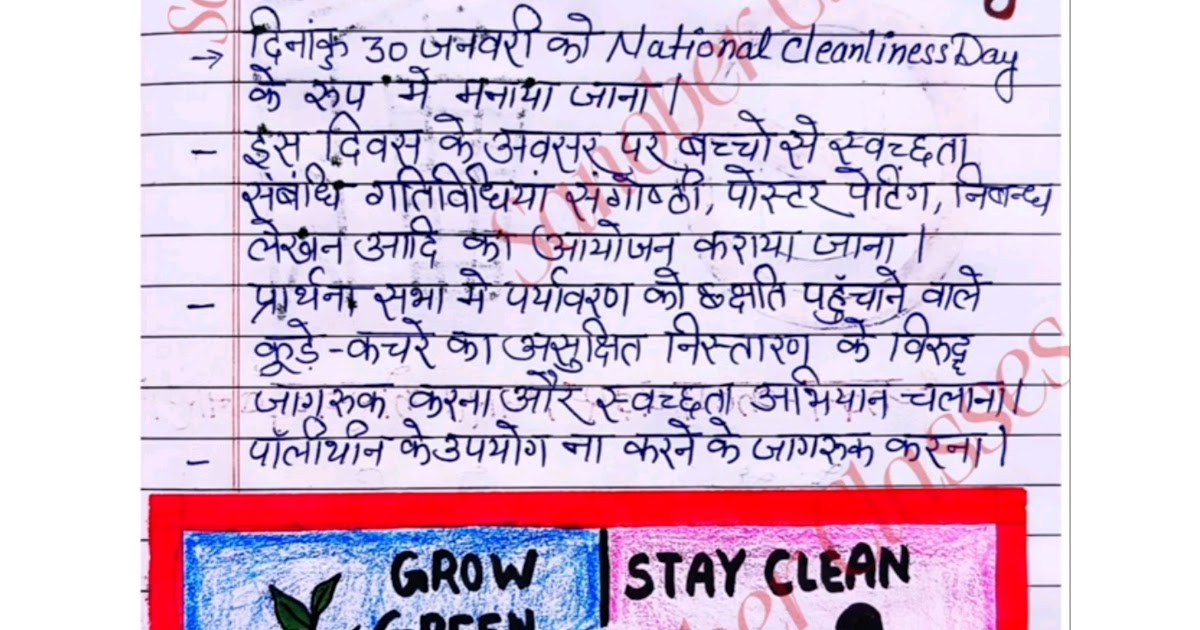 → दिनांक 30 जनवरी को National Cleanliness Day
के रूप में मनाया जाना।
- इस दिवस के अवसर पर बच्चो से स्वच्छता
संबंधि गतिविधियां संगोष्ठी, पोस्टर पेटिंग, निबन्ध
लेखन आदि का आयोजन कराया जाना।
- प्रार्थना सभा मे पर्यावरण को क्षति पहुँचाने वाले
कूड़े-कचरे का असुक्षित निस्तारण के विरुद्ध
जागरुक करना और स्वच्छता अभियान चलाना।
- पॉलीथीन के उपयोग ना करने के जागरुक करना।
GROW
GREEN
STAY CLEAN
Sanober
Classes